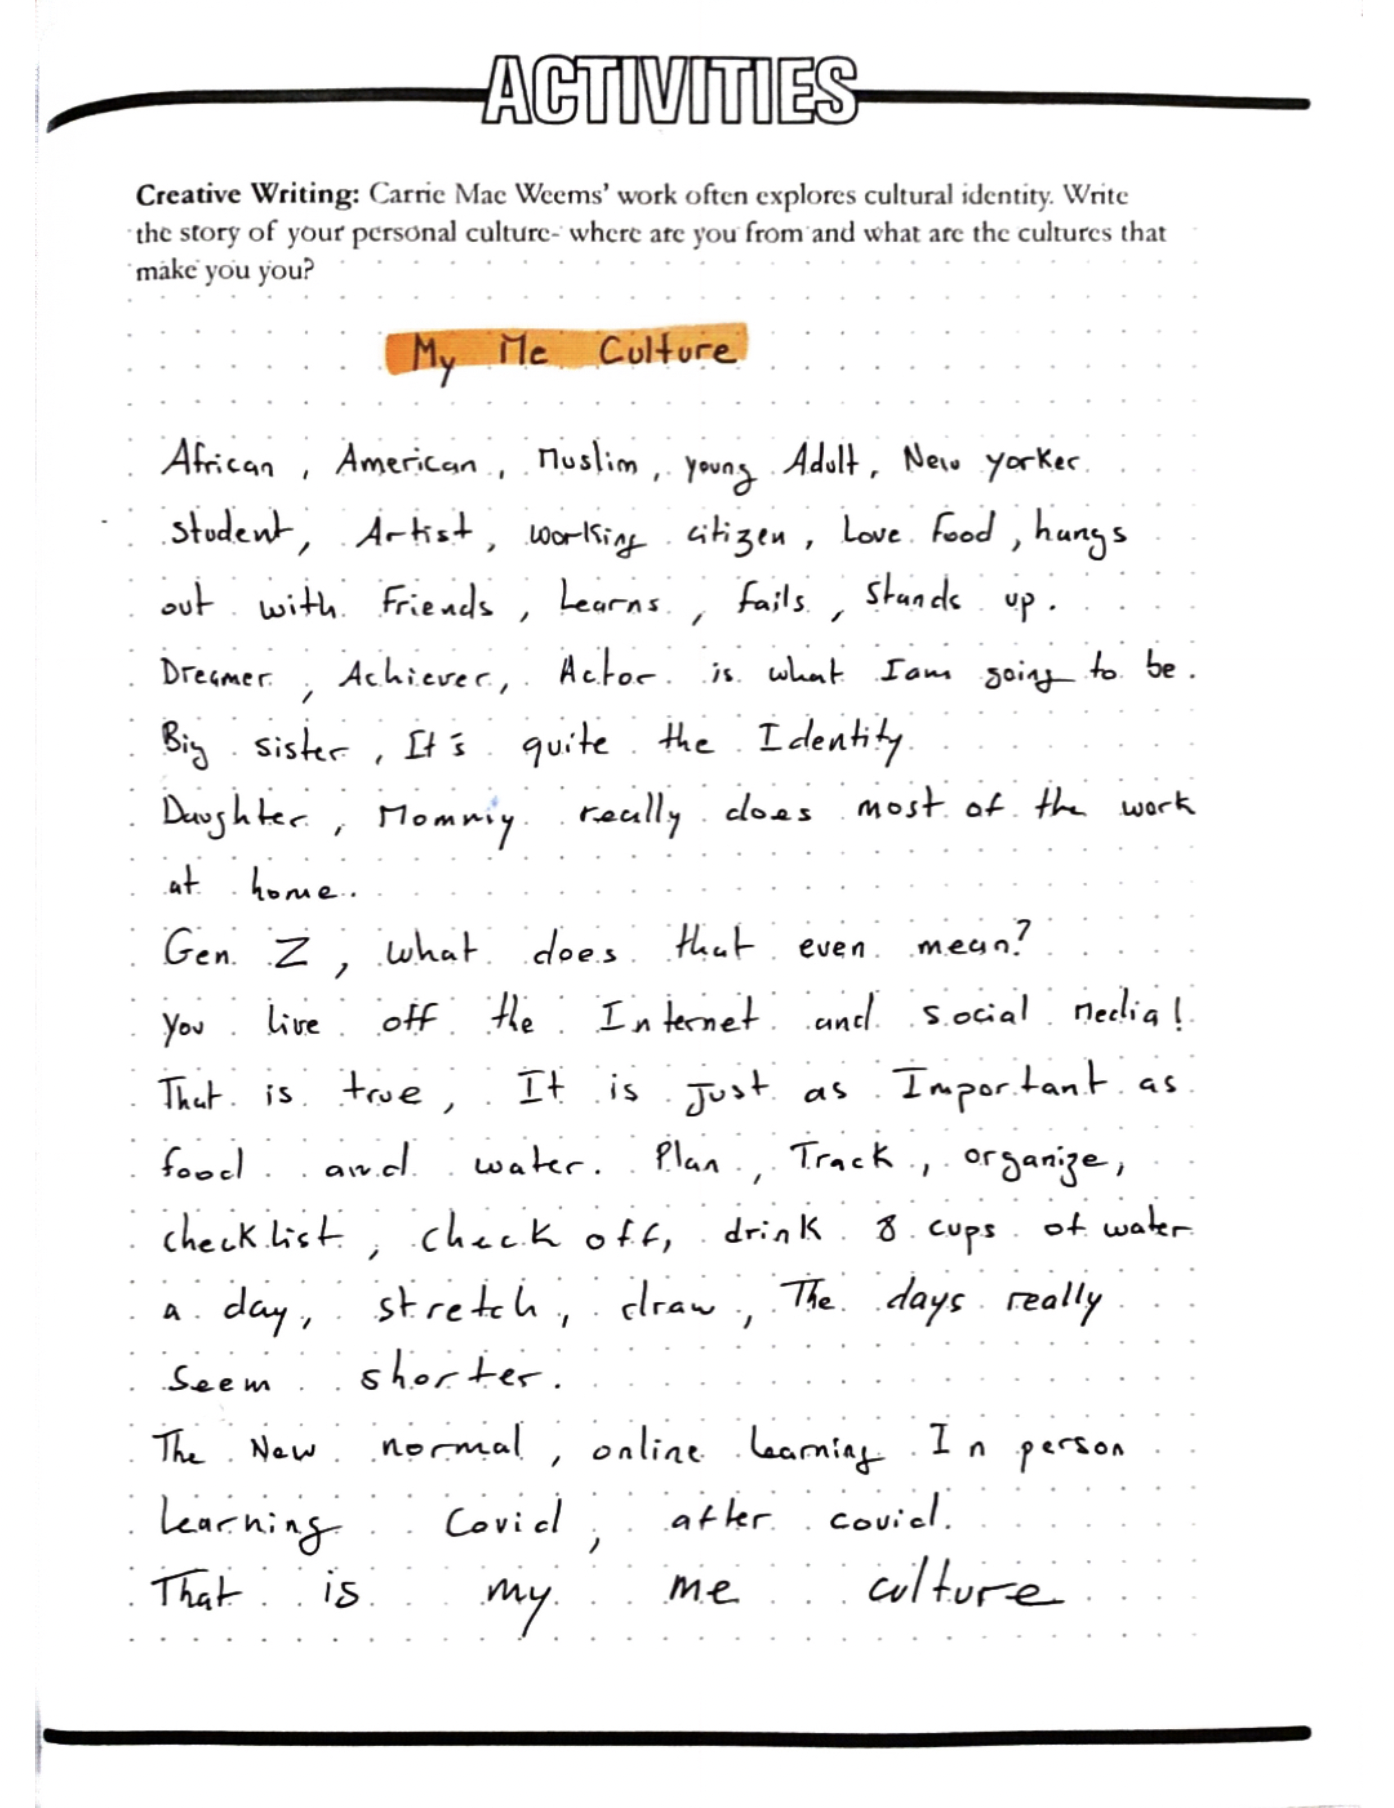 ACTIVITIES
Creative Writing: Carrie Mae Weems' work often explores cultural identity. Write
the story of your personal culture- where are you from and what are the cultures that
make you you?
My Me Culture
African, American, Muslim, young Adult, New yorker
student, Artist, working citizen, Love Food, hangs
out with Friends, Learns, fails, stands up.
Dreamer, Achiever, Actor is what I am going to be.
Big sister, It's quite the Identity
Daughter, Mommiy really does most of the work
at home.
Gen Z, what does that even mean?
you live off the Internet and social Media!
That is true, It is Just as Important as
food and water. Plan, Track, organize,
check list, check off, drink 8 cups of water
a day, stretch, draw, The days really
seem shorter.
The New normal, online learning In person
learning Covid, after covid.
That is my me culture